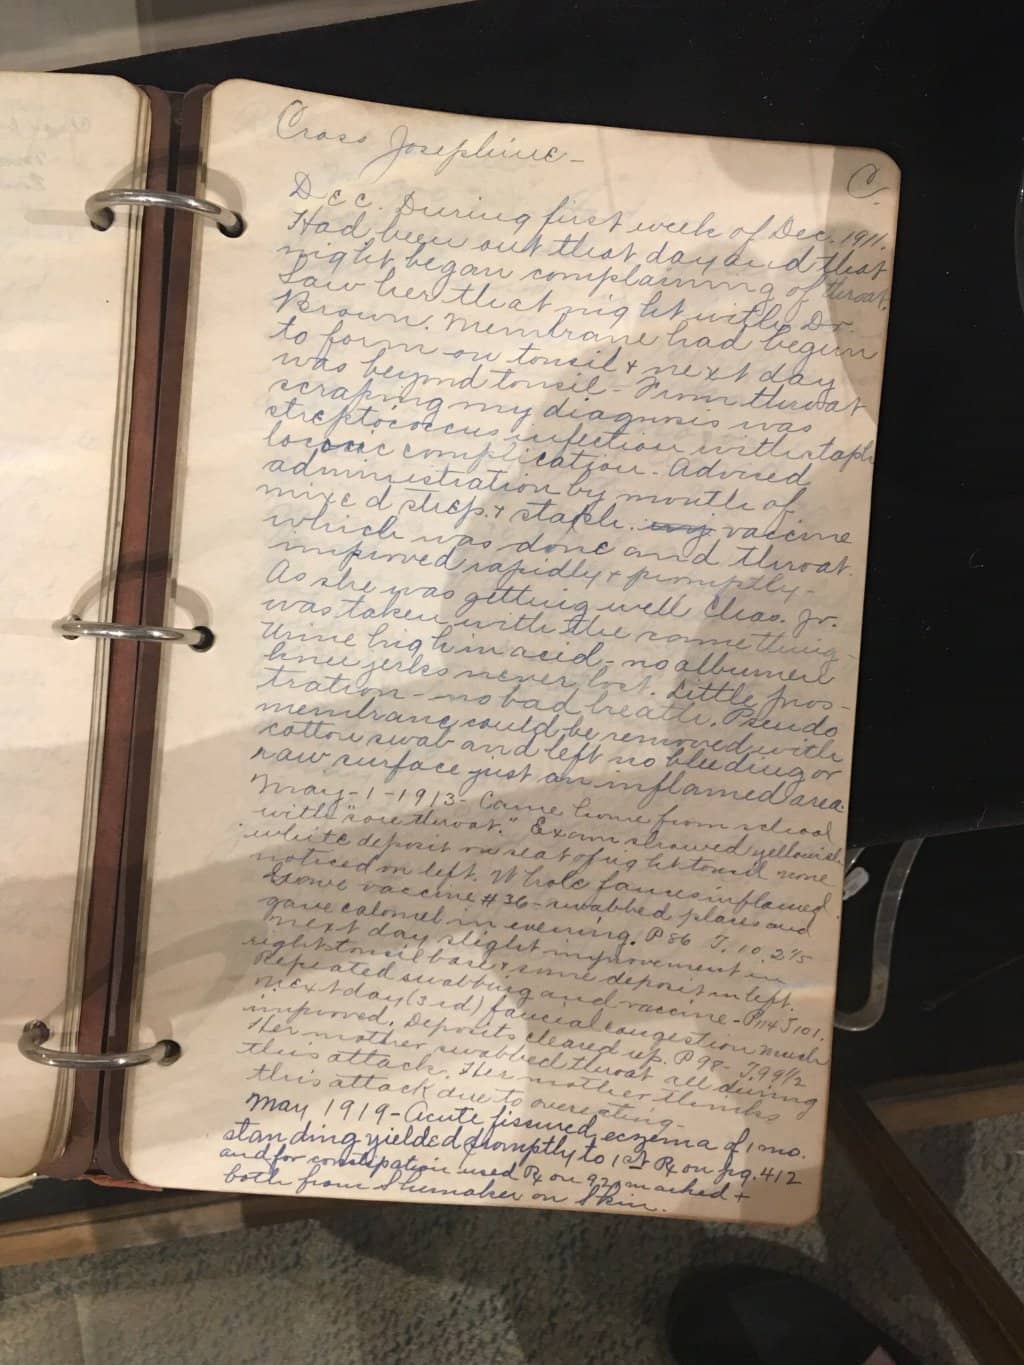 Cross Josephine -
C.
Dec. During first week of Dec. 1911.
Had been out that day and that
night began complaining of throat.
Saw her that night with Dr.
Brown. Membrane had begun
to form on tonsil + next day
was beyond tonsil - From throat
scraping my diagnosis was
streptococcus infection with staph
lococcic complication. Advised
administration by mouth of
mixed strep. + staph. vaccine
which was done and throat
improved rapidly + promptly -
As she was getting well Chas. Jr.
was taken with the same thing -
Urine high in acid - no albumen
knee jerks never lost. Little pros-
tration - no bad breath. Pseudo
membrane could be removed with
cotton swab and left no bleeding or
raw surface just an inflamed area.
May - 1 - 1913 - Came home from school
with "sore throat." Exam showed yellowish
white deposit on seat of right tonsil none
noticed on left. Whole fauces inflamed.
Gave vaccine #36 - swabbed places and
gave calomel in evening. P 86 T. 10.2 4/5
next day slight improvement in
right tonsil base + some deposit in left.
Repeated swabbing and vaccine - P 114 T 101.
next day (3rd) faucial congestion much
improved. Deposits cleared up. P 98 - T. 99 1/2
Her mother swabbed throat all during
this attack. Her mother thinks
this attack due to overeating -
May 1919 - Acute fissured eczema of 1 mo.
standing yielded promptly to 1st Rx on pg. 412
and for constipation used Rx on marked +
both from Shemaker on Skin.